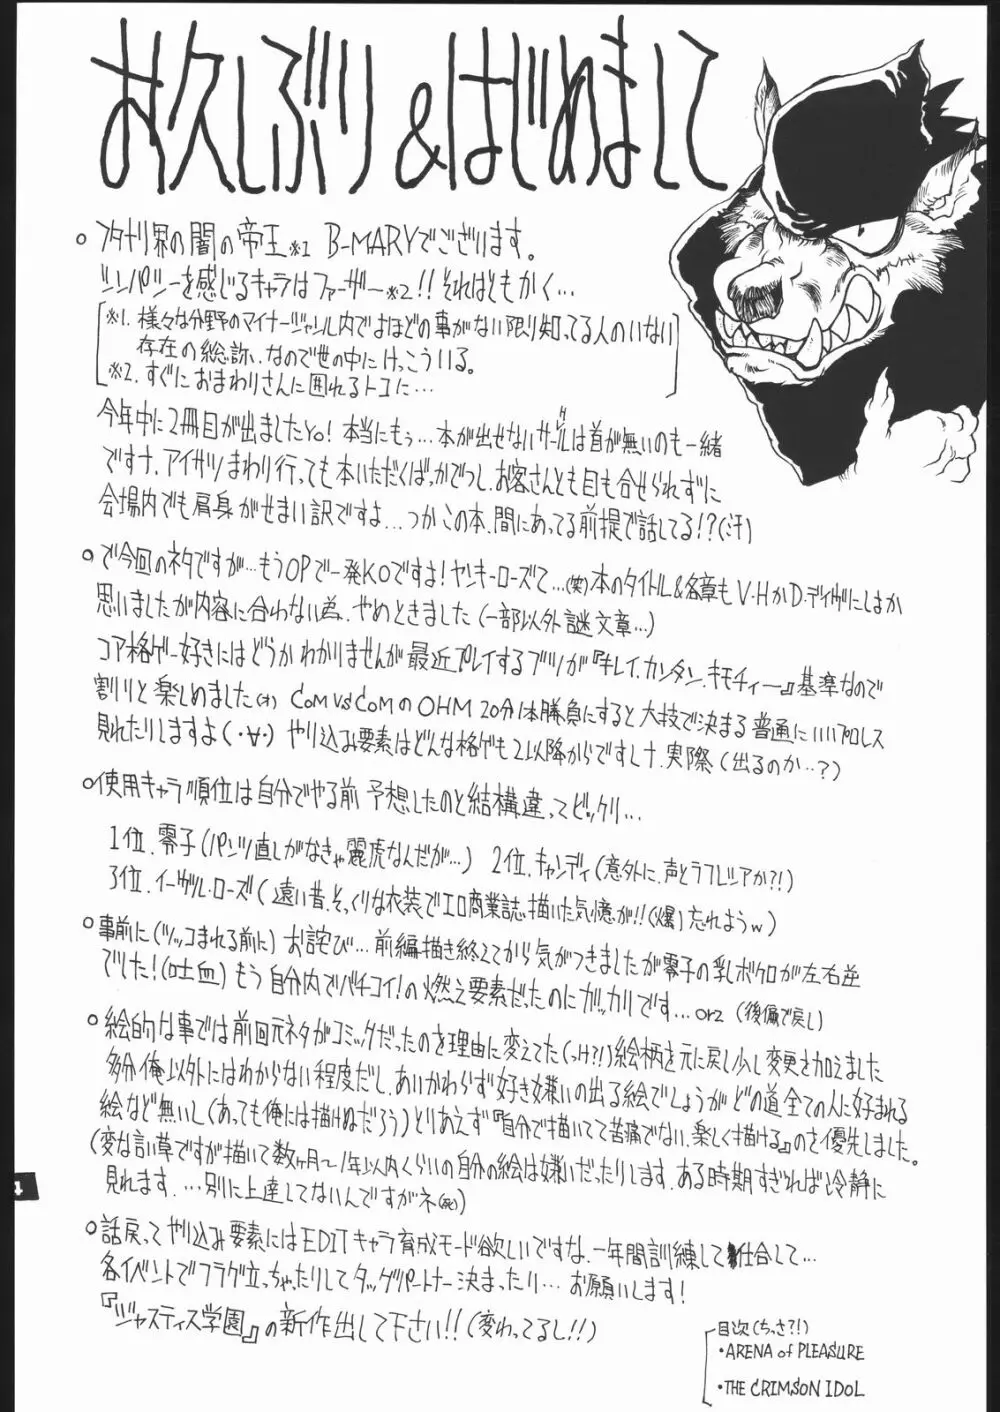 お久しぶり&はじめまして
○フタナリ界の闇の帝王※1 B-MARYでございます。
シンパシーを感じるキャラはファーザー※2!!それはともかく…
※1.様々な分野のマイナージャンル内でよほどの事がない限り知ってる人のいない
存在の総称、なので世の中にけっこういる。
※2.すぐにおまわりさんに囲れるトコに…
今年中に2冊目が出ましたYo!本当にもぅ…本が出せないサークルは首が無いのも一緒
ですナ.アイサツまわり行っても本いただくばっかでつし.お客さんとも目も合せられずに
会場内でも肩身がせまい訳ですよ…つかこの本、間にあってる前提で話してる!?(汗)
○で今回のネタですが…もうOPで一発KOですよ!ヤンキーローズて…(笑)本のタイトル&各章もV・HかD・デイヴにしよか
思いましたが内容に合わない為、やめときました(一部以外謎文章…)
コア格ゲー好きにはどうかわかりませんが最近プレイするブツが『キレイ.カンタン.キモチィー』基準なので
割りと楽しめました(オ) COM VS COMのOHM 20分1本勝負にすると大技で決まる普通にいいプロレス
見れたりしますよ(・∀・)やり込み要素はどんな格ゲも2以降からですしナ.実際(出るのか…?)
○使用キャラ順位は自分でやる前予想したのと結構違ってビックリ…
1位.零子(パンツ直しがなきゃ麗虎なんだが…) 2位.キャンディ(意外に.声とラフレシアか?!)
3位.イーヴル・ローズ(遠い昔.そっくりな衣装でエロ商業誌描いた気憶が!!(爆)忘れようw)
○事前に(ツッコまれる前に)お詫び…前編描き終えてから気がつきましたが零子の乳ボクロが左右逆
でした!(吐血)もう自分内でバチコイ!の燃え要素だったのにガッカリです…orz(後編で戻し)
○絵的な事では前回元ネタがコミックだったのを理由に変えてた(っけ?!)絵柄を元に戻し少し変更を加えました
多分俺以外にはわからない程度だし.あいかわらず好き嫌いの出る絵でしょうがどの道全ての人に好まれる
絵など無いし(あっても俺には描けぬだろう)とりあえず『自分で描いてて苦痛でない.楽しく描ける』のを優先しました。
(変な言い草ですが描いて数ヶ月〜1年以内くらいの自分の絵は嫌いだったりします.ある時期すぎれば冷静に
見れます.…別に上達してないんですがネ(死))
○話戻ってやり込み要素にはEDITキャラ育成モード欲しいですな.一年間訓練して仕合して…
各イベントでフラグ立っちゃったりしてタッグパートナー決まったり…お願いします!
『ジャスティス学園』の新作出して下さい!!(変わってるし!!)
目次(ちっさ?!)
・ARENA of PLEASURE
・THE CRIMSON IDOL
4